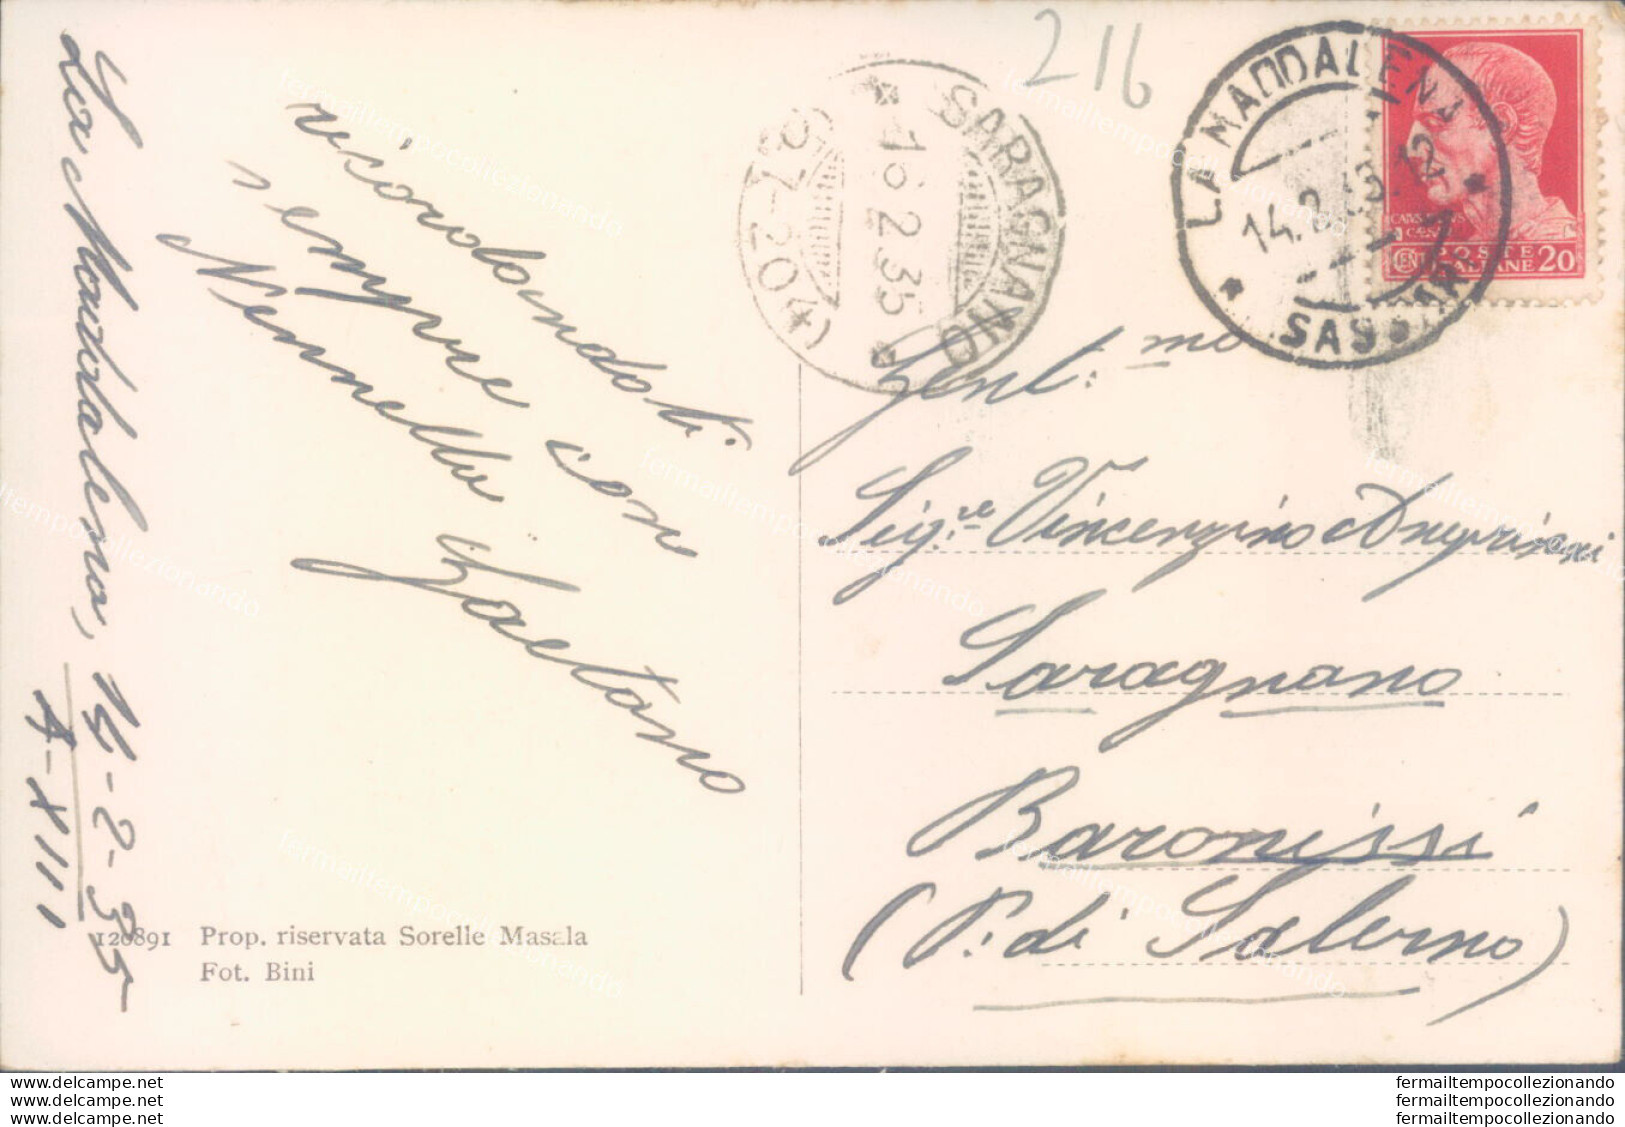 216
LA MADDALENA
14.2.35.12
* SASSARI *
POSTE
ITALIANE 20
CENT
SARAGNANO
* 16.2.35 *
(4-20-20)
La Maddalena, 14-2-35
A-XIII
ricordandoti
sempre con
Nennella
Gaetano
Gent.mo
Sig.re Vincenzino
Saragnano
Baronissi
(P. di Salerno)
120891 Prop. riservata Sorelle Masala
Fot. Bini
www.delcampe.net
www.delcampe.net
www.delcampe.net
fermailtempocollezionando
fermailtempocollezionando
fermailtempocollezionando